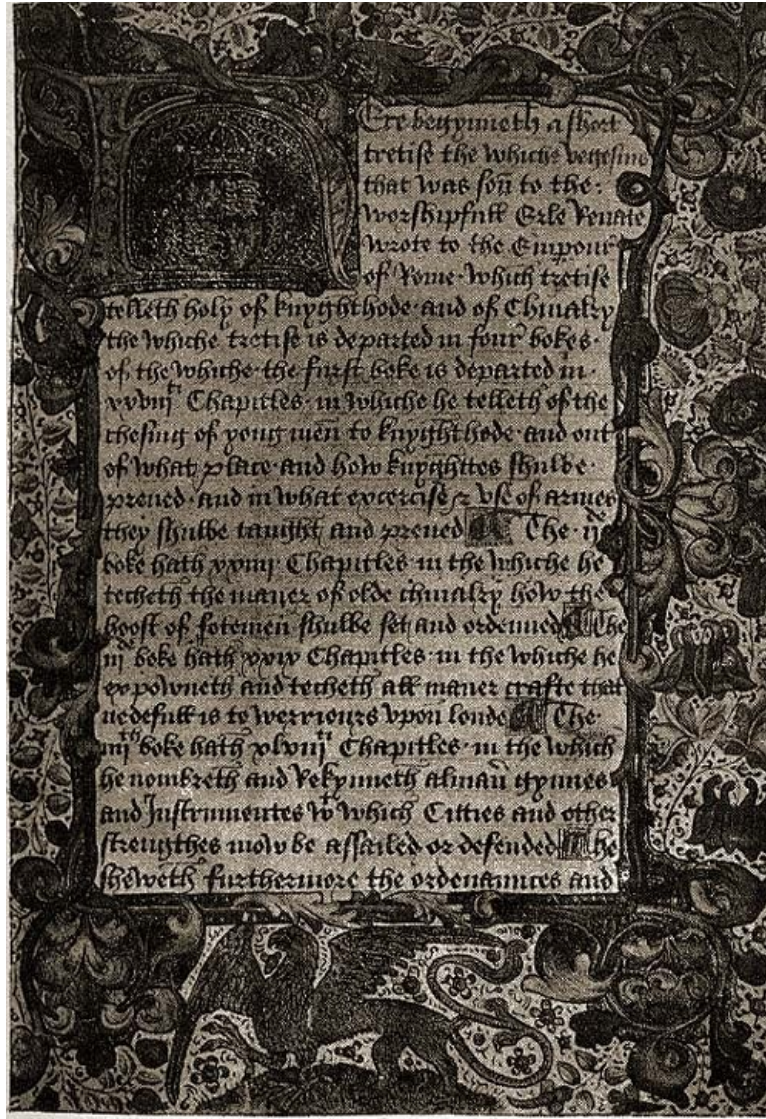 Ere begynneth a short
tretise the whiche vegesius
that was soū to the :
worshipfull Erle Renate
wrote to the Empour
of Rome · which tretise
telleth holy of knyghthode · and of Chiualry
the whiche tretise is departed in four bokes ·
of the whiche · the furst boke is departed in ·
xxviijti Chapitles · in whiche he telleth of the
chesing of yong men to knyghthode · and out
of what place · and how knyghttes shulbe ·
preued · and in what excercise & vse of armes
they shulbe taught and preued The · ijde
boke hath xxiiij · Chapitles in the whiche he
techeth the maner of olde chiualry how the
hoost of fotemen shulbe set and ordenned The
iijde boke hath xxiv Chapitles · in the whiche he
expowneth and techeth all maner crafte that
nedefull is to werriours vpon londe The ·
iiijth boke hath xlviijti Chapitles · in the which
he nombreth and Rekynneth almaū gynnes
and Instrumentes wt which Citties and other
strengthes mow be assailed or defended The
sheweth furthermore the ordenaunces and